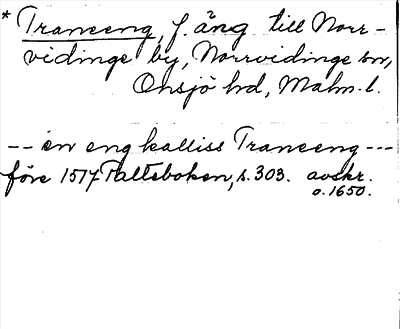 * Traneeng, f. äng till Norr-
vidinge by, Norrvidinge sn,
Onsjö hd, Malm. l.
-- en eng kalliss Traneeng ---
före 1517 Palteboken, s. 303. avskr.
o. 1650.